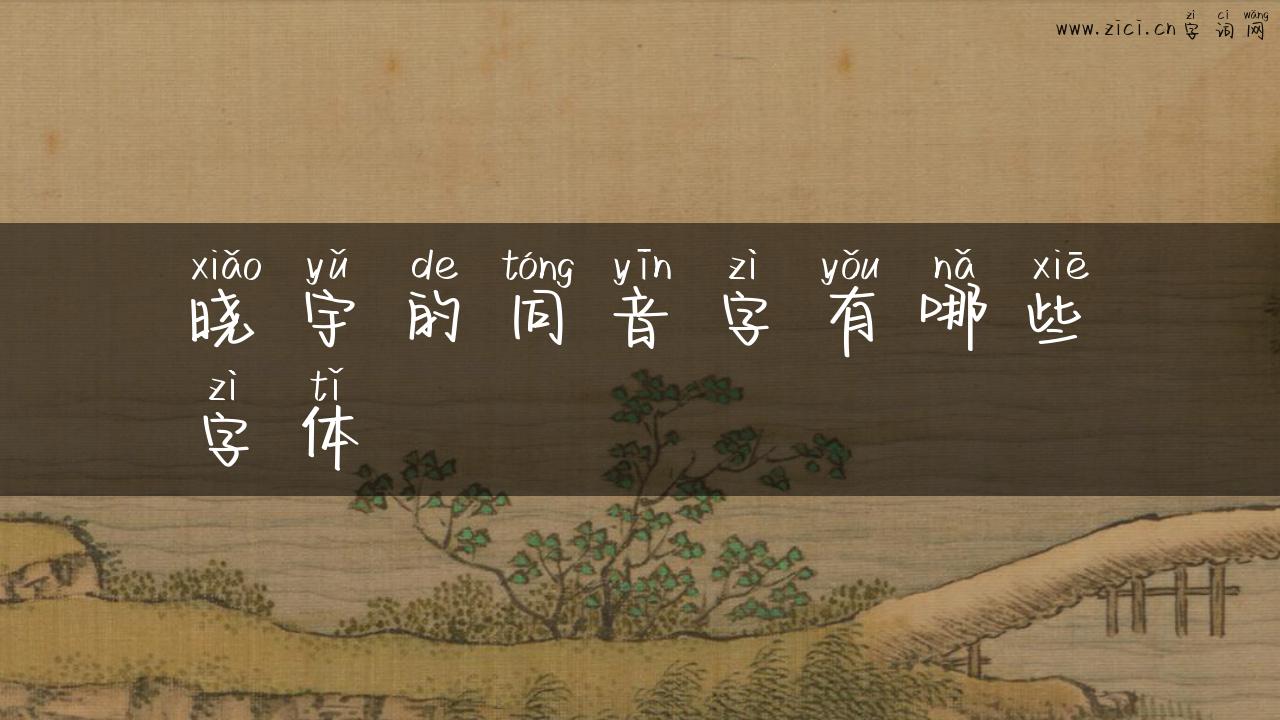 zì cí wǎng
www.zici.cn 字词网
xiǎo yǔ de tóng yīn zì yǒu nǎ xiē
晓宇的同音字有哪些
zì tǐ
字体